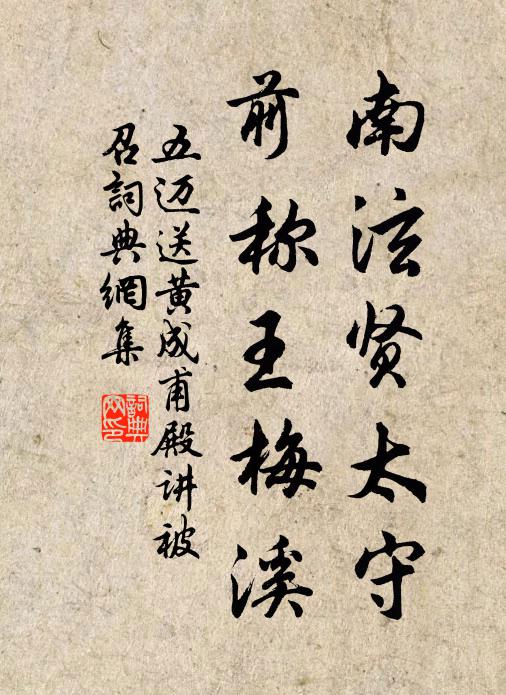 南泫贤太守
前称王梅溪
五迈送黄成甫殿讲被
召詞典網集
詞典网印